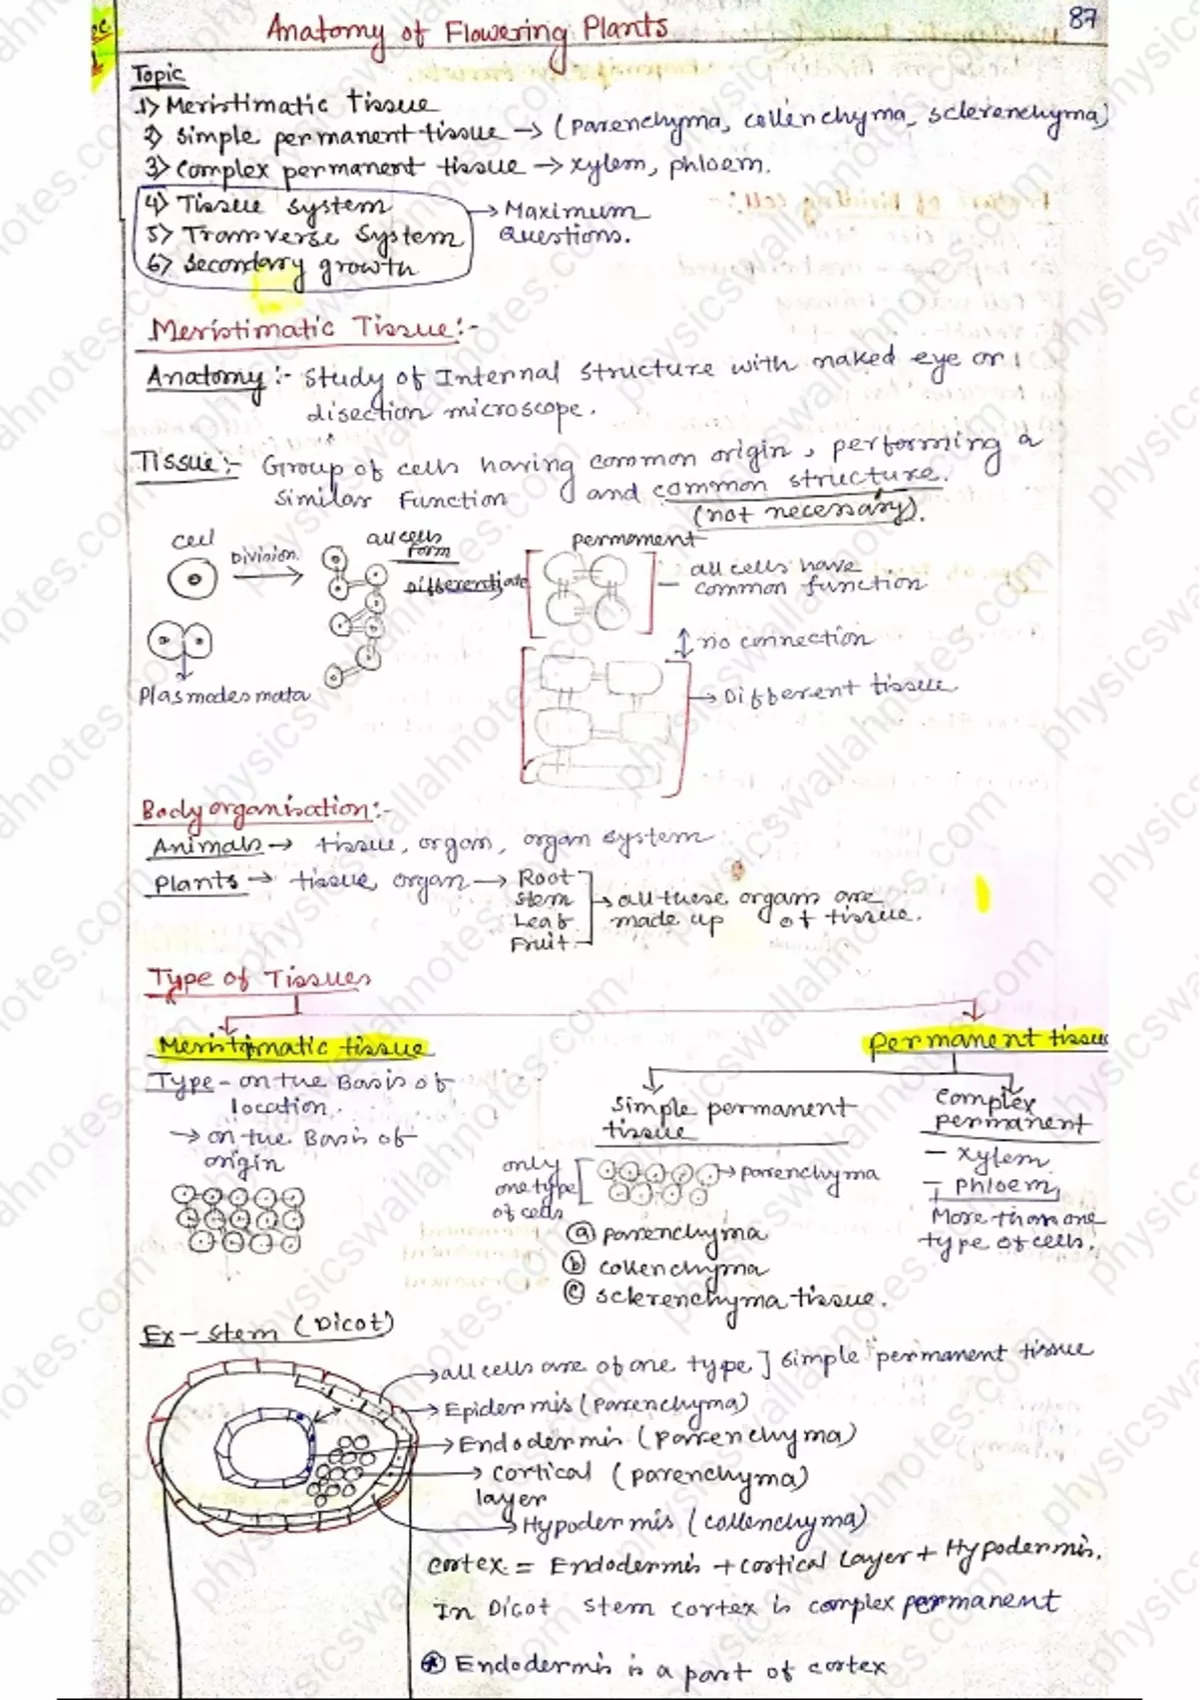 Anatomy of Flowering Plants
87
Topic
1) Meristimatic tissue
2) Simple permanent tissue → (Parenchyma, collenchyma, sclerenchyma)
3) Complex permanent tissue → xylem, phloem.
4) Tissue system
5) Tramverse System
6) Secondary growth
→ Maximum Questions.
Meristimatic Tissue:-
Anatomy :- Study of Internal structure with naked eye or
disection microscope.
Tissue:- Group of cells having common origin, performing a
similar Function and common structure.
(not necessary).
cell
Division
all cells form
Differentiate
permanent
all cells have
common function
no connection
Plasmodesmata
→ Different tissue
Body organisation:-
Animals → tissue, organ, organ system
Plants → tissue, organ → Root
Stem
Leaf
Fruit
→ all these organs are
made up of tissue.
Type of Tissues
Meristimatic tissue
Permanent tissue
Type - on the Basis of
location.
→ on the Basis of
origin
Simple permanent
tissue
Complex
permanent
only
one type
of cells
→ parenchyma
- xylem
- Phloem
More than one
type of cells.
(a) parenchyma
(b) collenchyma
(c) sclerenchyma tissue.
Ex - Stem (Dicot)
→ all cells are of one type ] Simple permanent tissue
→ Epidermis (Parenchyma)
→ Endodermis (Parenchyma)
→ cortical (parenchyma)
layer
→ Hypodermis (collenchyma)
cortex = Endodermis + cortical layer + Hypodermis.
In Dicot stem cortex is complex permanent
Endodermis is a part of cortex
physicswallahnotes.com